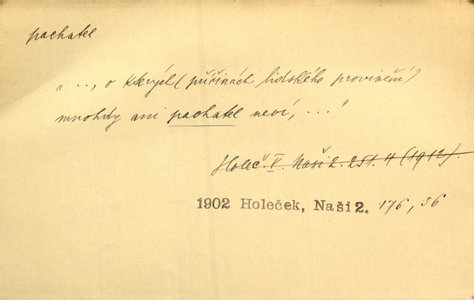 pachatel
„ . . , o kterých (příčinách lidského provinění)
mnohdy ani pachatel neví, . . . "
Holeč. V. Naši 2. 251. 4 (1912).
1902 Holeček, Naši 2. 176, 36